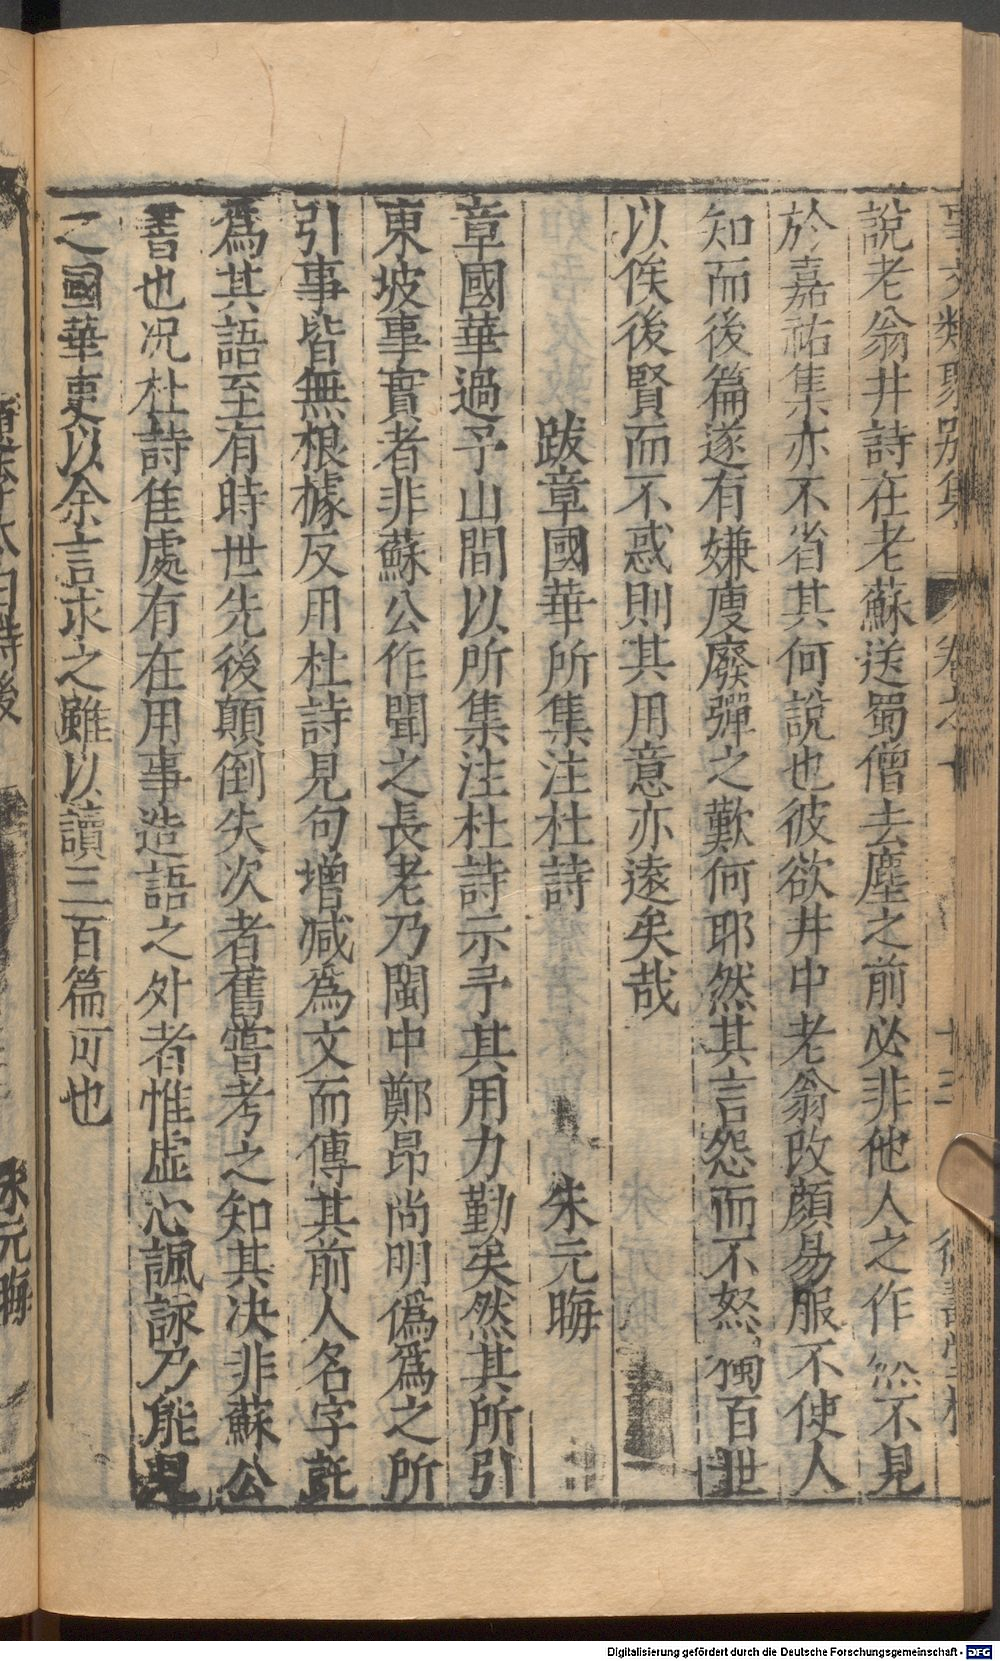 事文類聚別集 卷之十 十三
說老翁井詩在老蘇送蜀僧去塵之前必非他人之作然不見
於嘉祐集亦不省其何說也彼欲井中老翁改顏易服不使人
知而後篇遂有嫌廋廢彈之歎何耶然其言怨而不怒獨百世
以俟後賢而不惑則其用意亦遠矣哉
跋章國華所集注杜詩 朱元晦
章國華過予山間以所集注杜詩示予其用力勤矣然其所引
東坡事實者非蘇公作聞之長老乃閩中鄭昂尚明偽爲之所
引事皆無根據反用杜詩見句增減爲文而傳其前人名字託
爲其語至有時世先後顛倒失次者舊嘗考之知其决非蘇公
書也况杜詩隹處有在用事造語之外者惟虛心諷詠乃能見
之國華更以余言求之雖以讀三百篇可也
詩後
朱元晦
Digitalisierung gefördert durch die Deutsche Forschungsgemeinschaft - DFG